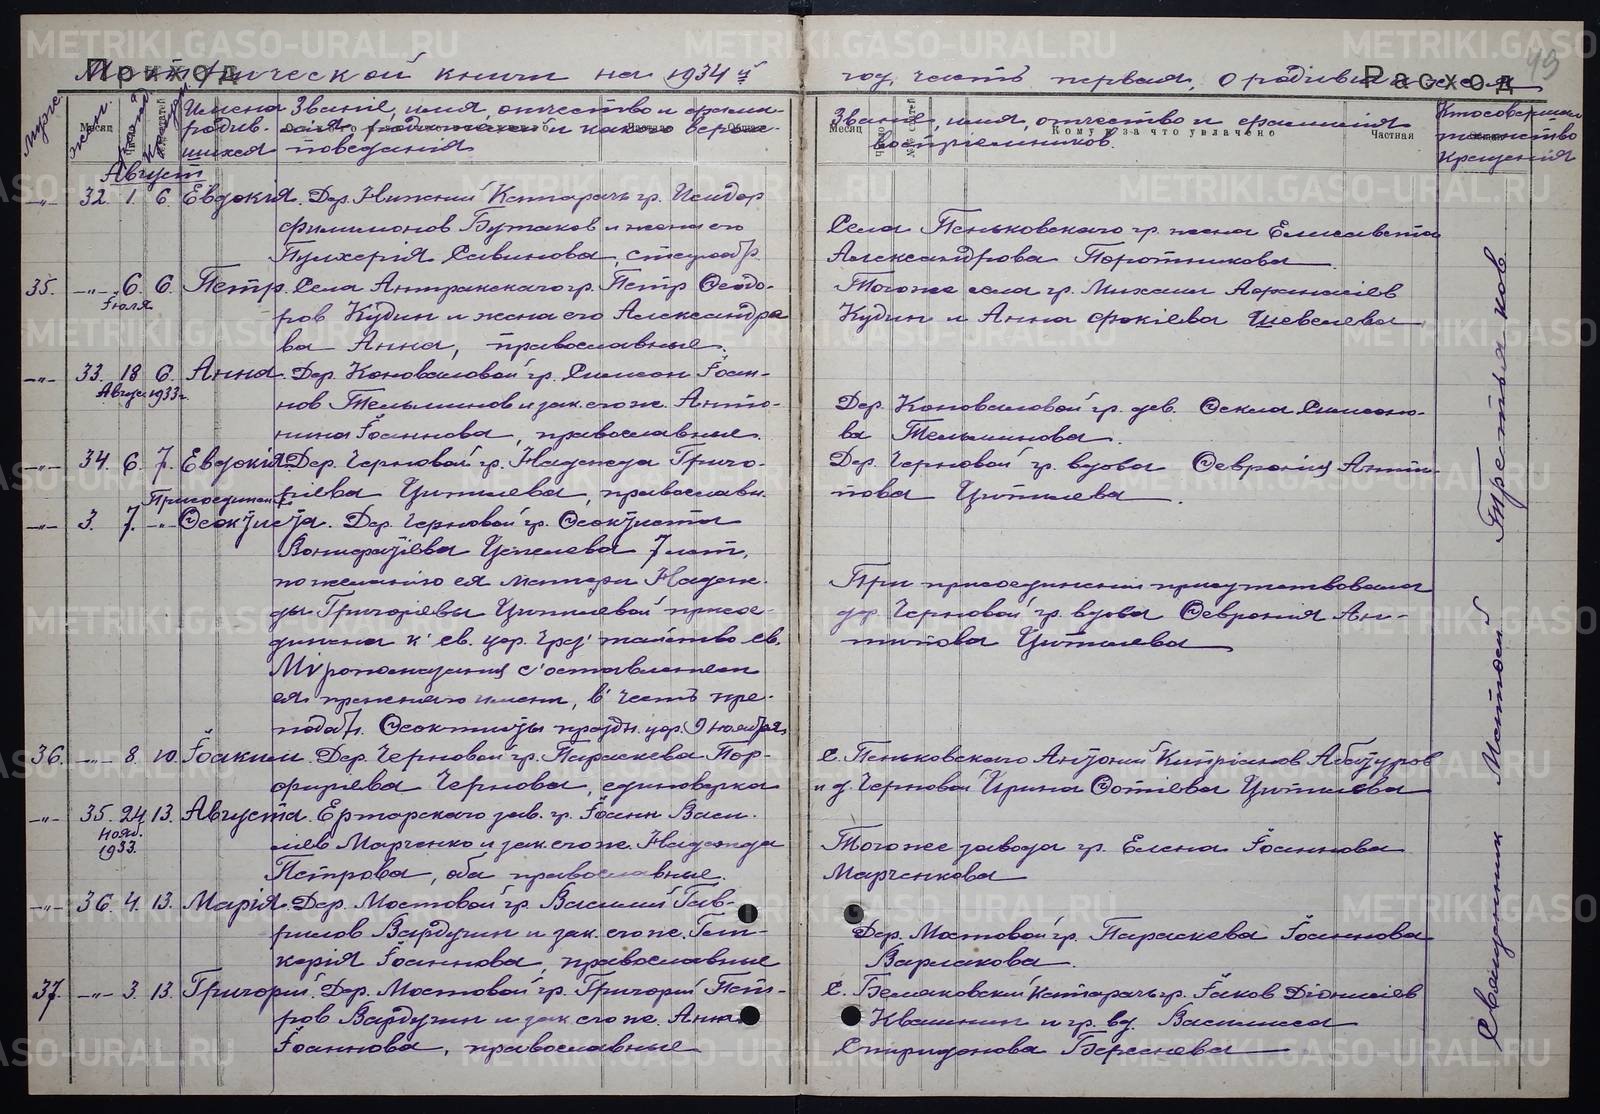 Приход
Метрической книги на 1934 й
год, часть первая, о родившихся
Расход
49
Муж.
Жен.
Рожд.
Крещ.
Имена родив-
шихся
Званіе, имя, отчество и фами-
лия родителей и какого веро-
исповедания
Званіе, имя, отчество и фамилия
восприемников.
Месяц
Кому и за что уплачено
Частная
Кто совершал
таинство
крещения
Август
-„- 32. 1. 6. Евдокия. Дер. Нижний Катарачь гр. Исидор
филимонов Бутаков и жена его
Пулхерия Савинова, старообр.
Села Пеньковского гр. жена Елисавета
Александрова Поротникова.
35. -„- 6. 6. Петр. Села гр. Петр Ѳеодо-
Июля
ров Кудин и жена его Александро-
ва Анна, православные.
Того же села гр. Михаил Афанасиев
Кудин и Анна фокіева Шевелева
-„- 33. 18 6. Анна. Дер. Коноваловой гр. Симеон Іоан-
Август 1933 г.
нов Тельминов и зак. его ж. Анто-
нина Іоаннова, православные.
Дер. Коноваловой гр. дев. Ѳекла Симеоно-
ва Тельминова.
-„- 34. 6. 7. Евдокия. Дер. Черновой гр. Надежда Григо-
ріева Ципилева, православн.
Дер. Черновой гр. вдова Ѳеврония Анти-
пова Ципилева.
Присоединен.
-„- 3. 7. -„- Ѳеоктиста. Дер. Черновой гр. Ѳеоктиста
Вонифатіева Ципелева 7 лет,
по желанию ея матери Надеж-
ды Григоріевы Ципилевой присое-
динена к св. цер. чрез таинство св.
Мѵропомазания с оставлением
ея прежнего имени, в честь пре-
подоб. Ѳеоктисты праздн. цер. 9 ноября.
При присоединении присутствовала
дер. Черновой гр. вдова Ѳеврония Ан-
типова Ципилева
36. -„- 8. 10. Іоаким. Дер. Черновой гр. Параскева Пор-
фирьева Чернова, единоверка
С. Пеньковского Антоний Кипріанов Абатуров
и д. Черновой Ирина Фотіева Ципилева
-„- 35. 24 13. Августа. Ертарского зав. гр. Іоанн Васи-
Нояб.
1933.
лиев Марченко и зак. его ж. Надежда
Петрова, оба православные.
Того же завода гр. Елена Іоаннова
Марченкова
-„- 36. 4. 13. Марія. Дер. Мостовой гр. Василий Гав-
рилов Вардугин и зак. его ж. Гли-
керия Іоаннова, православные
Дер. Мостовой гр. Параскева Іоаннова
Варлакова.
37. -„- 3. 13. Григорий. Дер. Мостовой гр. Григорий Пет-
ров Вардугин и зак. его ж. Анна
Іоаннова, православные
С. Беляковский Катарачь гр. Іаков Діонисіев
Квашнин и гр. вд. Василиса
Спиридонова Береснева
Священник Матѳей Третьяков
METRIKI.GASO-URAL.RU